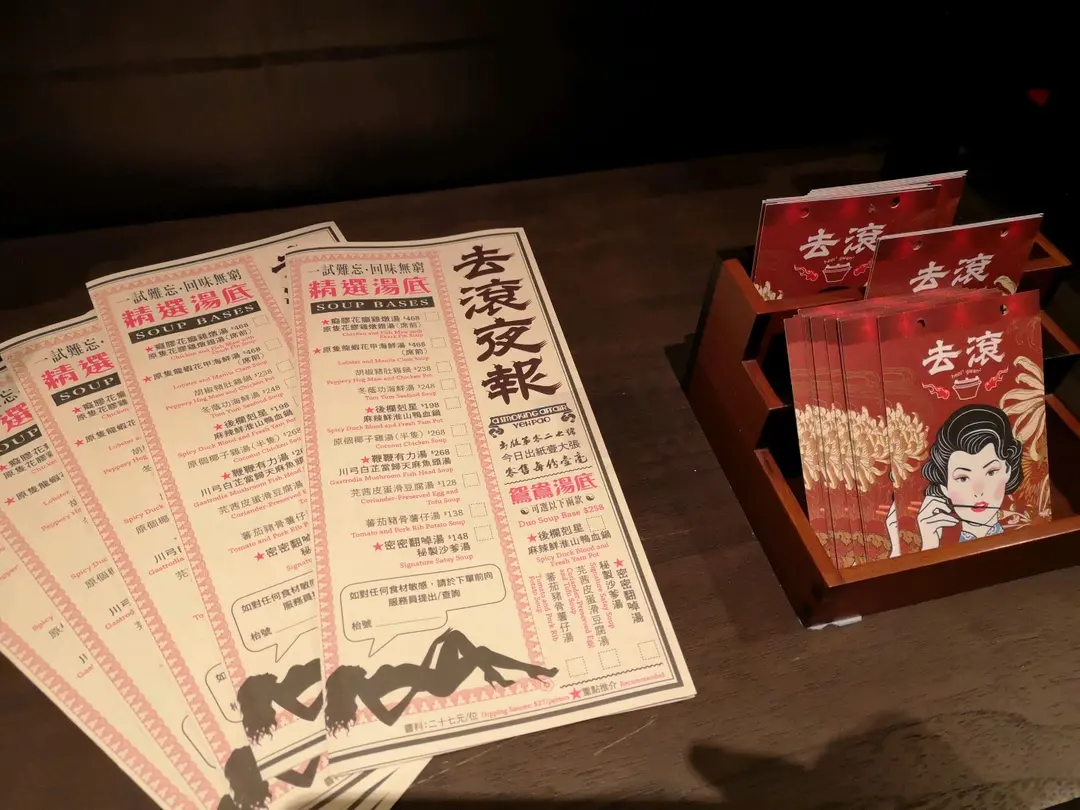 一試難忘·回味無窮
精選湯底
SOUP BASES
$468
原隻花膠雞燉雞湯(席前)
Chicken and Fish Maw with
★原隻龍蝦花甲海鮮湯 $468
(席前)
Lobster and Manila Clam Soup
胡椒豬肚雞鍋 $238
Peppery Hog Maw and Chicken Pot
冬蔭功海鮮湯 $248
Tom Yum Seafood Soup
★後欄剋星 $198
麻辣鮮淮山鴨血鍋
Spicy Duck Blood and Fresh Yam Pot
原個椰子雞湯(半隻) $268
Coconut Chicken Soup
★鞭鞭有力湯 $268
川弓白芷當歸天麻魚頭湯
Gastrodia Mushroom Fish Head Soup
芫茜皮蛋滑豆腐湯 $128
Coriander-Preserved Egg and
Tofu Soup
蕃茄豬骨薯仔湯 $138
Tomato and Pork Rib Potato Soup
★密密翻啅湯 $148
秘製沙爹湯
Signature Satay Soup
如對任何食材敏感，請於下單前向
服務員提出/查詢
枱號
醬料:二十七元/位 Dipping Sauces: $27/person
★重點推介 Recommended
去滾夜報
a smoking affair
今日出紙壹大張
鴛鴦湯底
可選以下兩款
Duo Soup Base $258
★後欄剋星
麻辣鮮淮山鴨血鍋
Spicy Duck Blood and
Fresh Yam Pot
★密密翻啅湯
秘製沙爹湯
Signature Satay Soup
芫茜皮蛋滑豆腐湯
Coriander-Preserved Egg
and Tofu Soup
蕃茄豬骨薯仔湯
Tomato and Pork Rib
Potato Soup
去滾
去滾
去滾